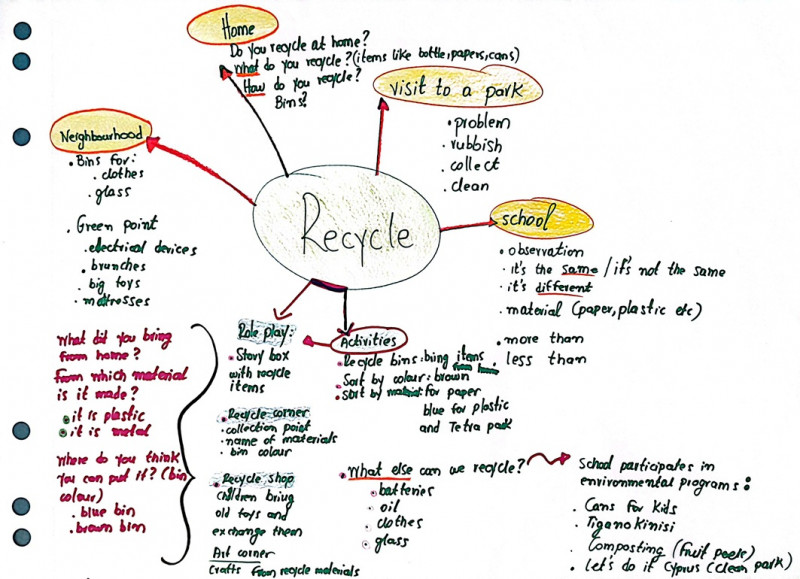 Home
Do you recycle at home?
What do you recycle? (items like bottle, papers, cans)
How do you recycle?
Bins?
visit to a park
• problem
• rubbish
• collect
• clean
Neighbourhood
• Bins for:
• clothes
• glass
• Green point
• electrical devices
• brunches
• big toys
• mattresses
Recycle
school
• observation
• it's the same / it's not the same
• it's different
• material (paper, plastic etc)
• more than
less than
Activities
• Recycle bins: bring items from home
Sort by colour: brown
• Sort by material: for paper
blue for plastic
and Tetra pack
Role play:
• Story box
with recycle
items
• Recycle corner
• collection point
• name of materials
• bin colour
• Recycle shop
Children bring
old toys and
exchange them
Art corner
Crafts from recycle materials
What did you bring
from home?
From which material
is it made?
• it is plastic
• it is metal
Where do you think
you can put it? (bin
colour)
• blue bin
• brown bin
• What else can we recycle?
• batteries
• oil
• clothes
• glass
School participates in
environmental programs:
• Cans for Kids
• Tigano Kinisi
• Composting (fruit peels)
• Let's do it Cyprus (clean park)